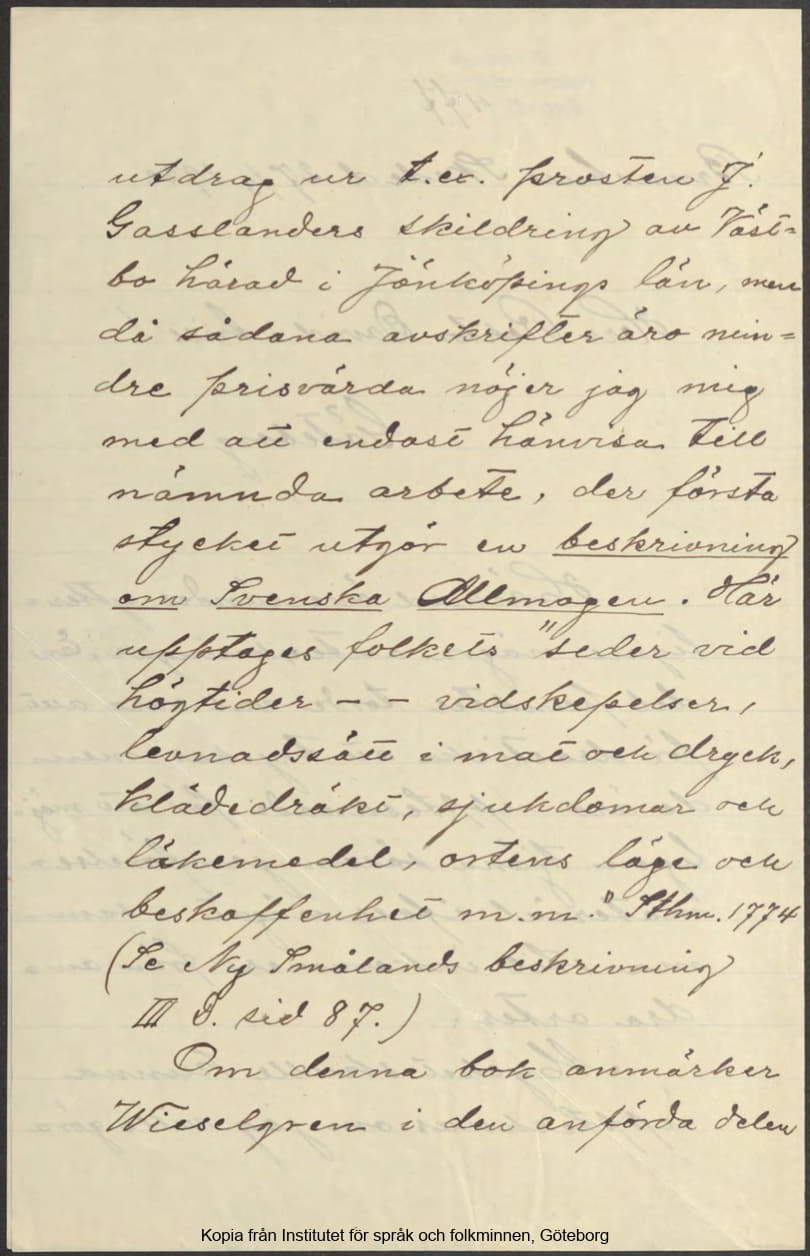 utdrag ur t.ex. prosten J.
Gasslanders skildring av Väst=
bo härad i Jönköpings län, men
då sådana avskrifter äro min=
dre prisvärda nöjer jag mig
med att endast hänvisa till
nämnda arbete, der första
stycket utgör en beskrivning
om Svenska Allmogen. Här
upptages folkets "seder vid
högtider – – vidskepelser,
levnadssätt i mat och dryck,
klädedräkt, sjukdomar och
läkemedel, ortens läge och
beskaffenhet m.m." Sthm. 1774
(Se Ny Smålands beskrivning
III D. sid 87.)
Om denna bok anmärker
Wieselgren i den anförda delen
Kopia från Institutet för språk och folkminnen, Göteborg